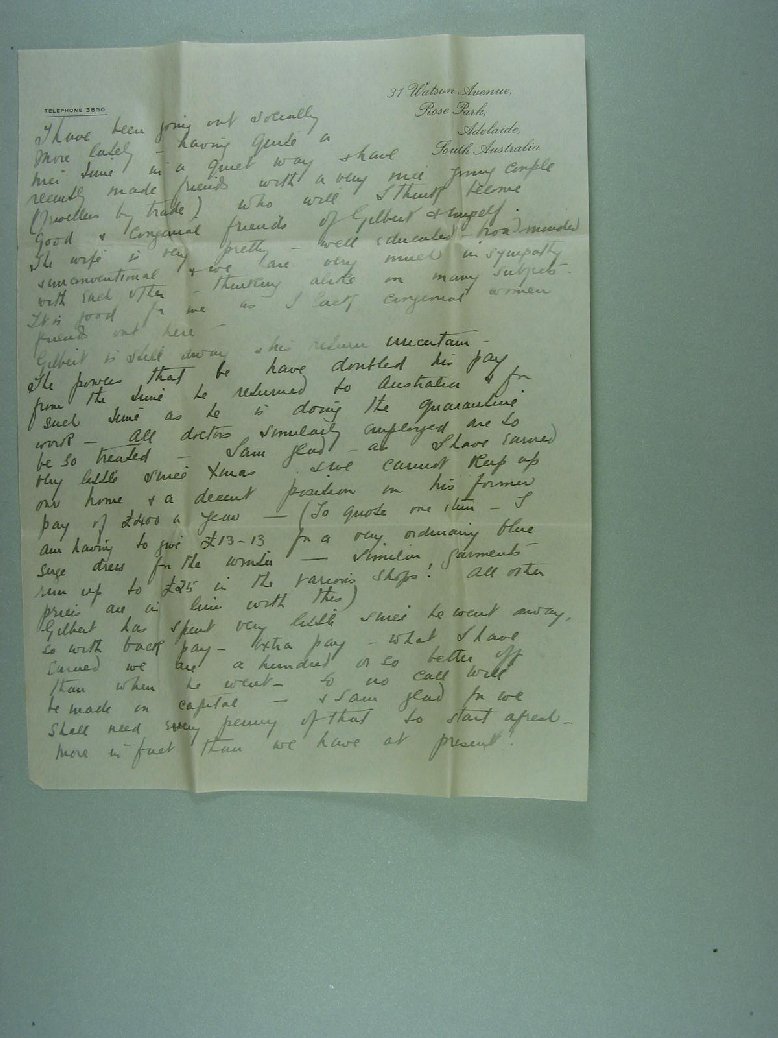 31 Watson Avenue,
Rose Park,
Adelaide,
South Australia.
TELEPHONE 3850.
I have been going out socially
more lately – having quite a
nice time in a quiet way & have
recently made friends with a very nice young couple
(Jewellers by trade) who will I think become
good & congenial friends of Gilbert & myself.
The wife is very pretty – well educated – broad minded
unconventional & we are very much in sympathy
with each other – thinking alike on many subjects –
It is good for me as I lack congenial women
friends out here –
Gilbert is still away & his return uncertain –
The powers that be have doubled his pay
from the time he returned to Australia & for
such time as he is doing the quarantine
work – All doctors similarly employed are to
be so treated – I am glad – as I have earned
very little since Xmas & we cannot keep up
our home & a decent position on his former
pay of £400 a year – (To quote one item – I
am having to give £13-13 for a very ordinary blue
serge dress for the winter – similar garments
run up to £25 in the various shops! All other
prices are in line with this)
Gilbert has spent very little since he went away,
so with back pay – extra pay – what I have
earned we are a hundred or so better off
than when he went – so no call will
be made on capital – & I am glad for we
shall need every penny of that to start afresh –
more in fact than we have at present!